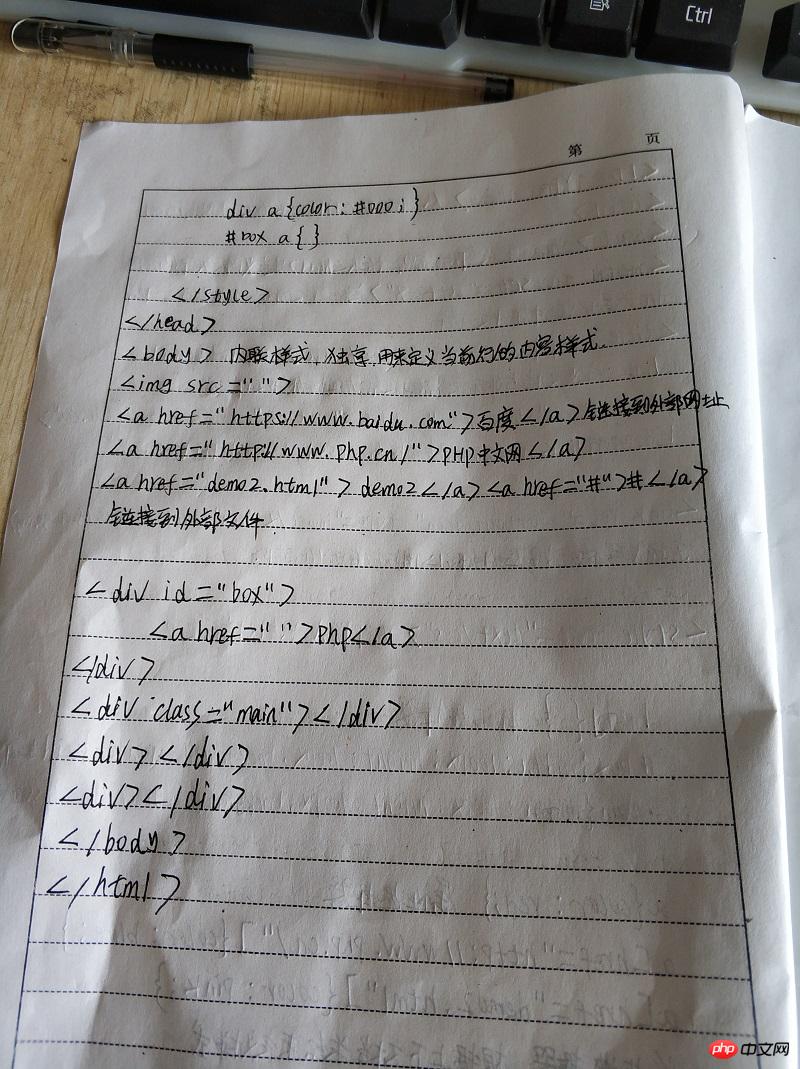 Ctrl
第 页
div a{color: #000;}
#box a{ }
</style>
</head>
<body> 内联样式,独享,用来定义当前行的内容样式.
<img src=" ">
<a href="https://www.baidu.com">百度</a>链接到外部网址
<a href="http://www.php.cn/">PHP中文网</a>
<a href="demo2.html"> demo2</a><a href="#">#</a>
链接到外部文件.
<div id="box">
<a href=" ">php</a>
</div>
<div class="main"></div>
<div></div>
<div></div>
</body>
</html>
php 中文网